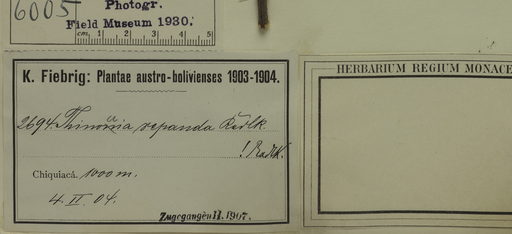 6005
Photogr.
Field Museum 1930.
cm. 1 2 3 4 5
K. Fiebrig: Plantae austro-bolivienses 1903-1904.
2694. Thinouia repanda Radlk
! Radlk.
Chiquiacá. 1000 m.
4. II. 04.
Zugegangen II. 1907.
HERBARIUM REGIUM MONACE